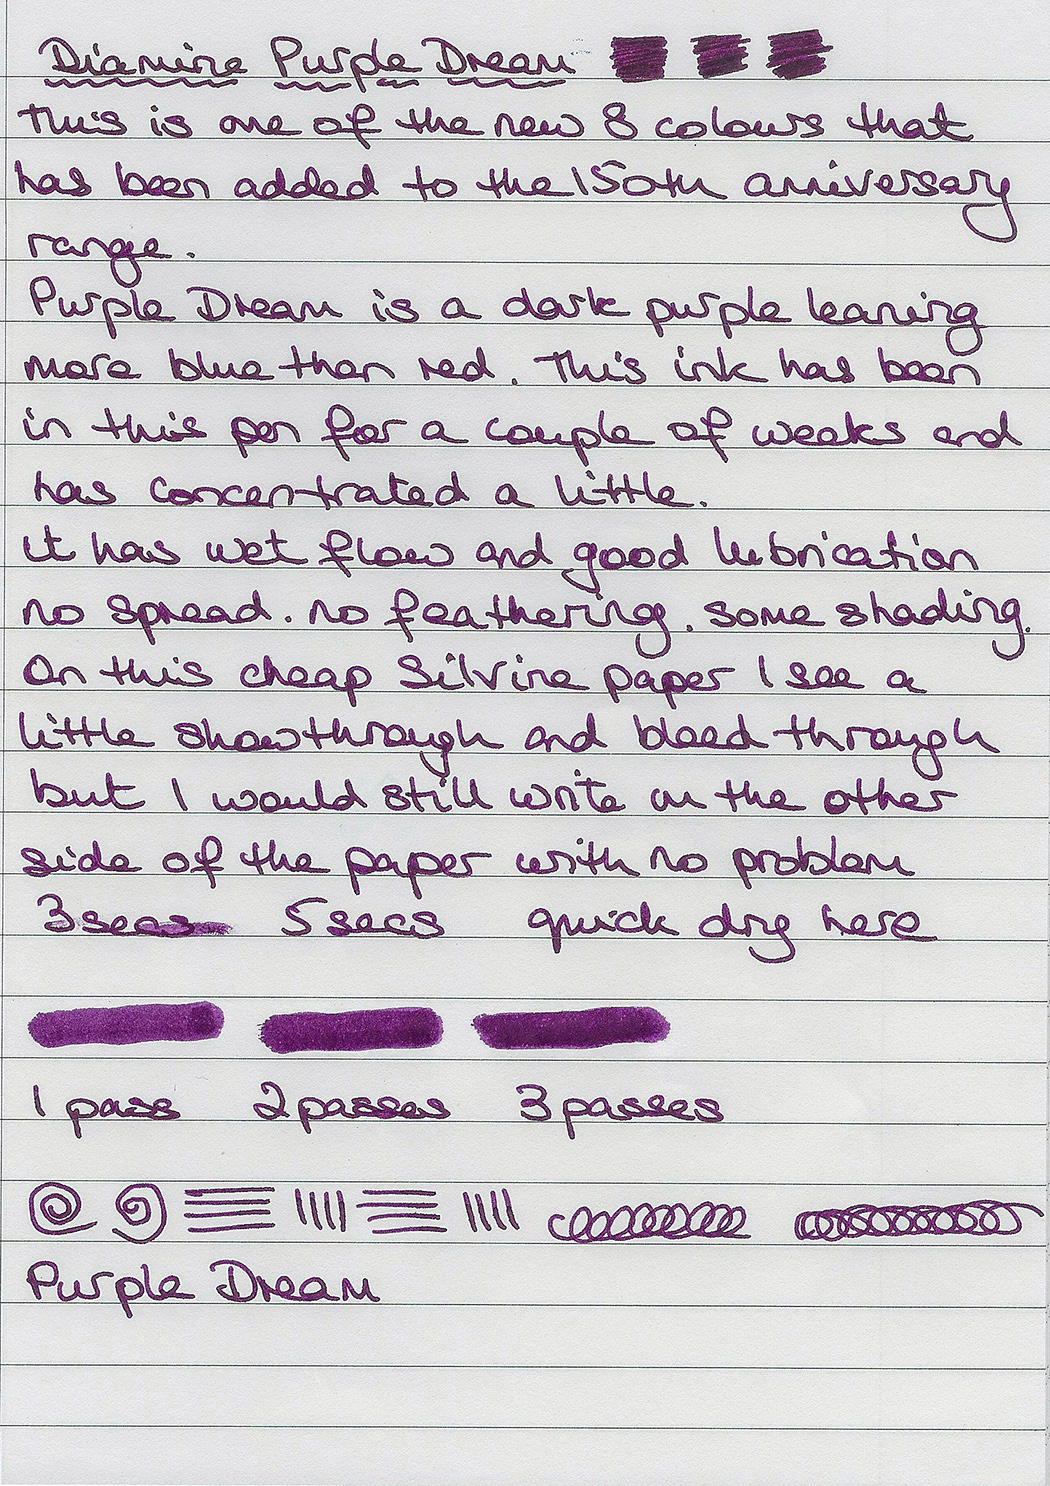 Diamine Purple Dream
This is one of the new 8 colours that
has been added to the 150th anniversary
range.
Purple Dream is a dark purple leaning
more blue than red. This ink has been
in this pen for a couple of weeks and
has concentrated a little.
it has wet flow and good lubrication
no spread. no feathering. some shading.
On this cheap Silvine paper I see a
little showthrough and bleed through
but I would still write on the other
side of the paper with no problem
3secs 5secs quick dry here
1 pass 2 passes 3 passes
Purple Dream